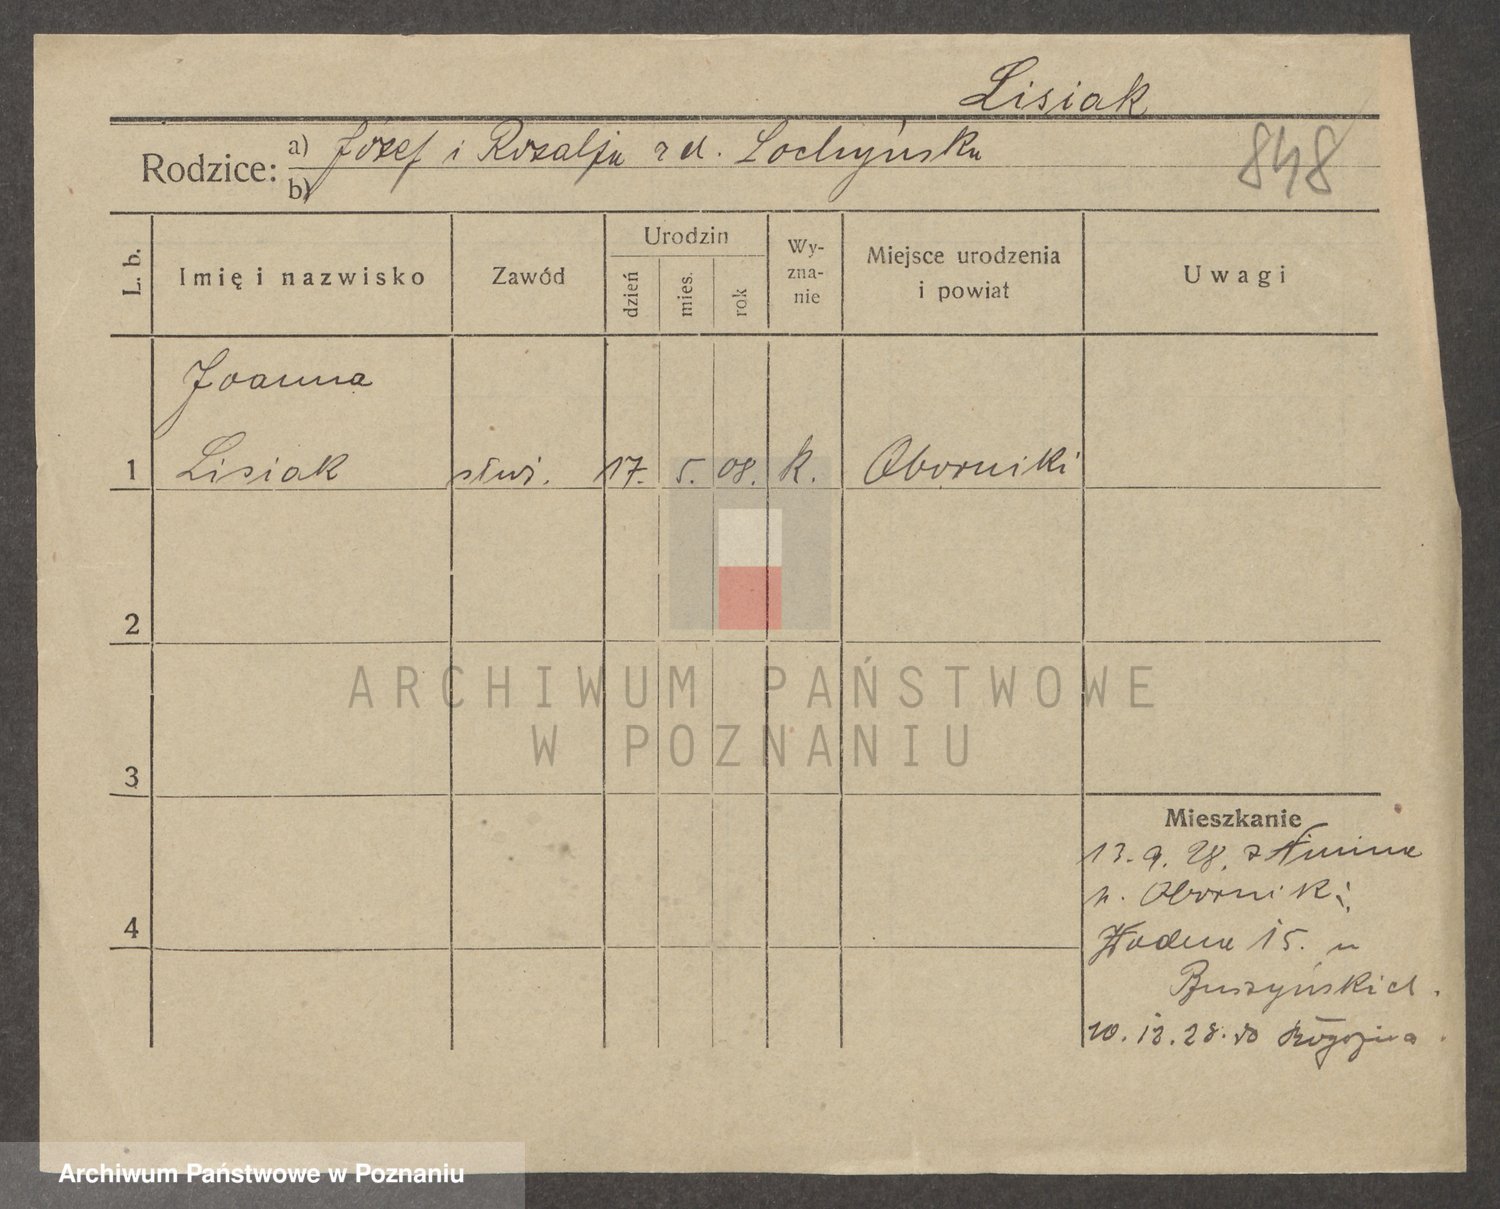 Lisiak
Rodzice: a) Józef i Rozalja zd. Lochyńska
b)
848
L. b.
Imię i nazwisko
Zawód
Urodzin
dzień
mies.
rok
Wy-
zna-
nie
Miejsce urodzenia
i powiat
Uwagi
Joanna
1 Lisiak służ. 17. 5. 08. k. Oborniki
2
3
4
Mieszkanie
13. 9. 28. z
p. Oborniki
Wodna 15. u
Buszyńskich.
10. 12. 28. do Rogoźna
ARCHIWUM PAŃSTWOWE
W POZNANIU
Archiwum Państwowe w Poznaniu